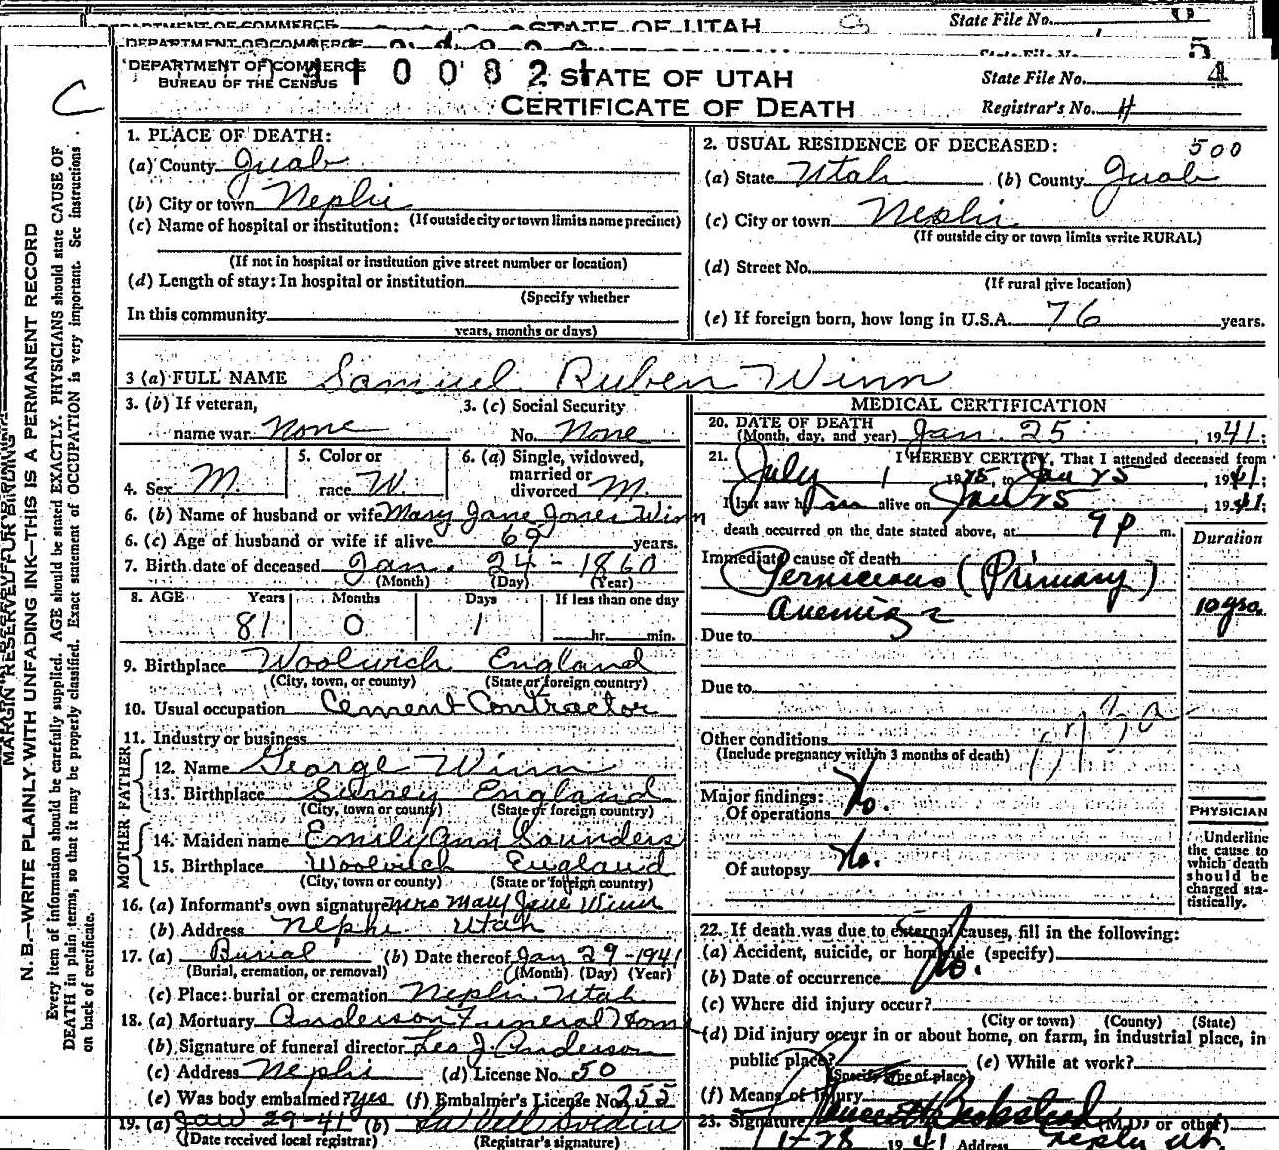 STATE OF UTAH
State File No.
DEPARTMENT OF COMMERCE
BUREAU OF THE CENSUS
STATE OF UTAH
State File No. 4
CERTIFICATE OF DEATH
Registrar's No. 4
C
1. PLACE OF DEATH:
(a) County Juab
(b) City or town Nephi
(If outside city or town limits name precinct)
(c) Name of hospital or institution:
(If not in hospital or institution give street number or location)
(d) Length of stay: In hospital or institution
(Specify whether
In this community
years, months or days)
2. USUAL RESIDENCE OF DECEASED: 500
(a) State Utah (b) County Juab
(c) City or town Nephi
(If outside city or town limits write RURAL)
(d) Street No.
(If rural give location)
(e) If foreign born, how long in U.S.A. 76 years.
3 (a) FULL NAME Samuel Ruben Winn
3. (b) If veteran, name war None
3. (c) Social Security No. None
4. Sex M.
5. Color or race W.
6. (a) Single, widowed, married or divorced M.
6. (b) Name of husband or wife Mary Jane Jones Winn
6. (c) Age of husband or wife if alive 69 years.
7. Birth date of deceased Jan. 24 - 1860
(Month) (Day) (Year)
8. AGE Years Months Days If less than one day
81 0 1 hr. min.
9. Birthplace Woolwich England
(City, town, or county) (State or foreign country)
10. Usual occupation Cement Contractor
11. Industry or business
FATHER
12. Name George Winn
13. Birthplace Surrey England
(City, town or county) (State or foreign country)
MOTHER
14. Maiden name Emily Ann Saunders
15. Birthplace Woolwich England
(City, town or county) (State or foreign country)
16. (a) Informant's own signature Mrs Mary Jane Winn
(b) Address Nephi Utah
17. (a) Burial (b) Date thereof Jan 29-1941
(Burial, cremation, or removal) (Month) (Day) (Year)
(c) Place: burial or cremation Nephi, Utah
18. (a) Mortuary Anderson Funeral Home
(b) Signature of funeral director Leo J. Anderson
(c) Address Nephi (d) License No. 50
(e) Was body embalmed? yes (f) Embalmer's License No. 255
19. (a) Jan 29-41 (b)
(Date received local registrar) (Registrar's signature)
MEDICAL CERTIFICATION
20. DATE OF DEATH
(Month, day, and year) Jan. 25, 1941;
21. I HEREBY CERTIFY, That I attended deceased from
July 1 to Jan 25, 1941;
I last saw him alive on Jan 25, 1941;
death occurred on the date stated above, at 9 P m.
Duration
Immediate cause of death
Pernicious (Primary)
Anemia 10 yrs.
Due to
Due to
Other conditions
(Include pregnancy within 3 months of death)
Major findings:
Of operations No.
Of autopsy No.
PHYSICIAN
Underline
the cause to
which death
should be
charged sta-
tistically.
22. If death was due to external causes, fill in the following:
(a) Accident, suicide, or homicide (specify)
(b) Date of occurrence No.
(c) Where did injury occur?
(City or town) (County) (State)
(d) Did injury occur in or about home, on farm, in industrial place, in
public place? (e) While at work?
(Specify type of place)
(f) Means of injury
23. Signature (M.D. or other)
1-28 1941 Address Nephi Ut.
MARGIN RESERVED FOR BINDING
N. B.—WRITE PLAINLY WITH UNFADING INK—THIS IS A PERMANENT RECORD
Every item of information should be carefully supplied. AGE should be stated EXACTLY. PHYSICIANS should state CAUSE OF
DEATH in plain terms, so that it may be properly classified. Exact statement of OCCUPATION is very important. See instructions
on back of certificate.